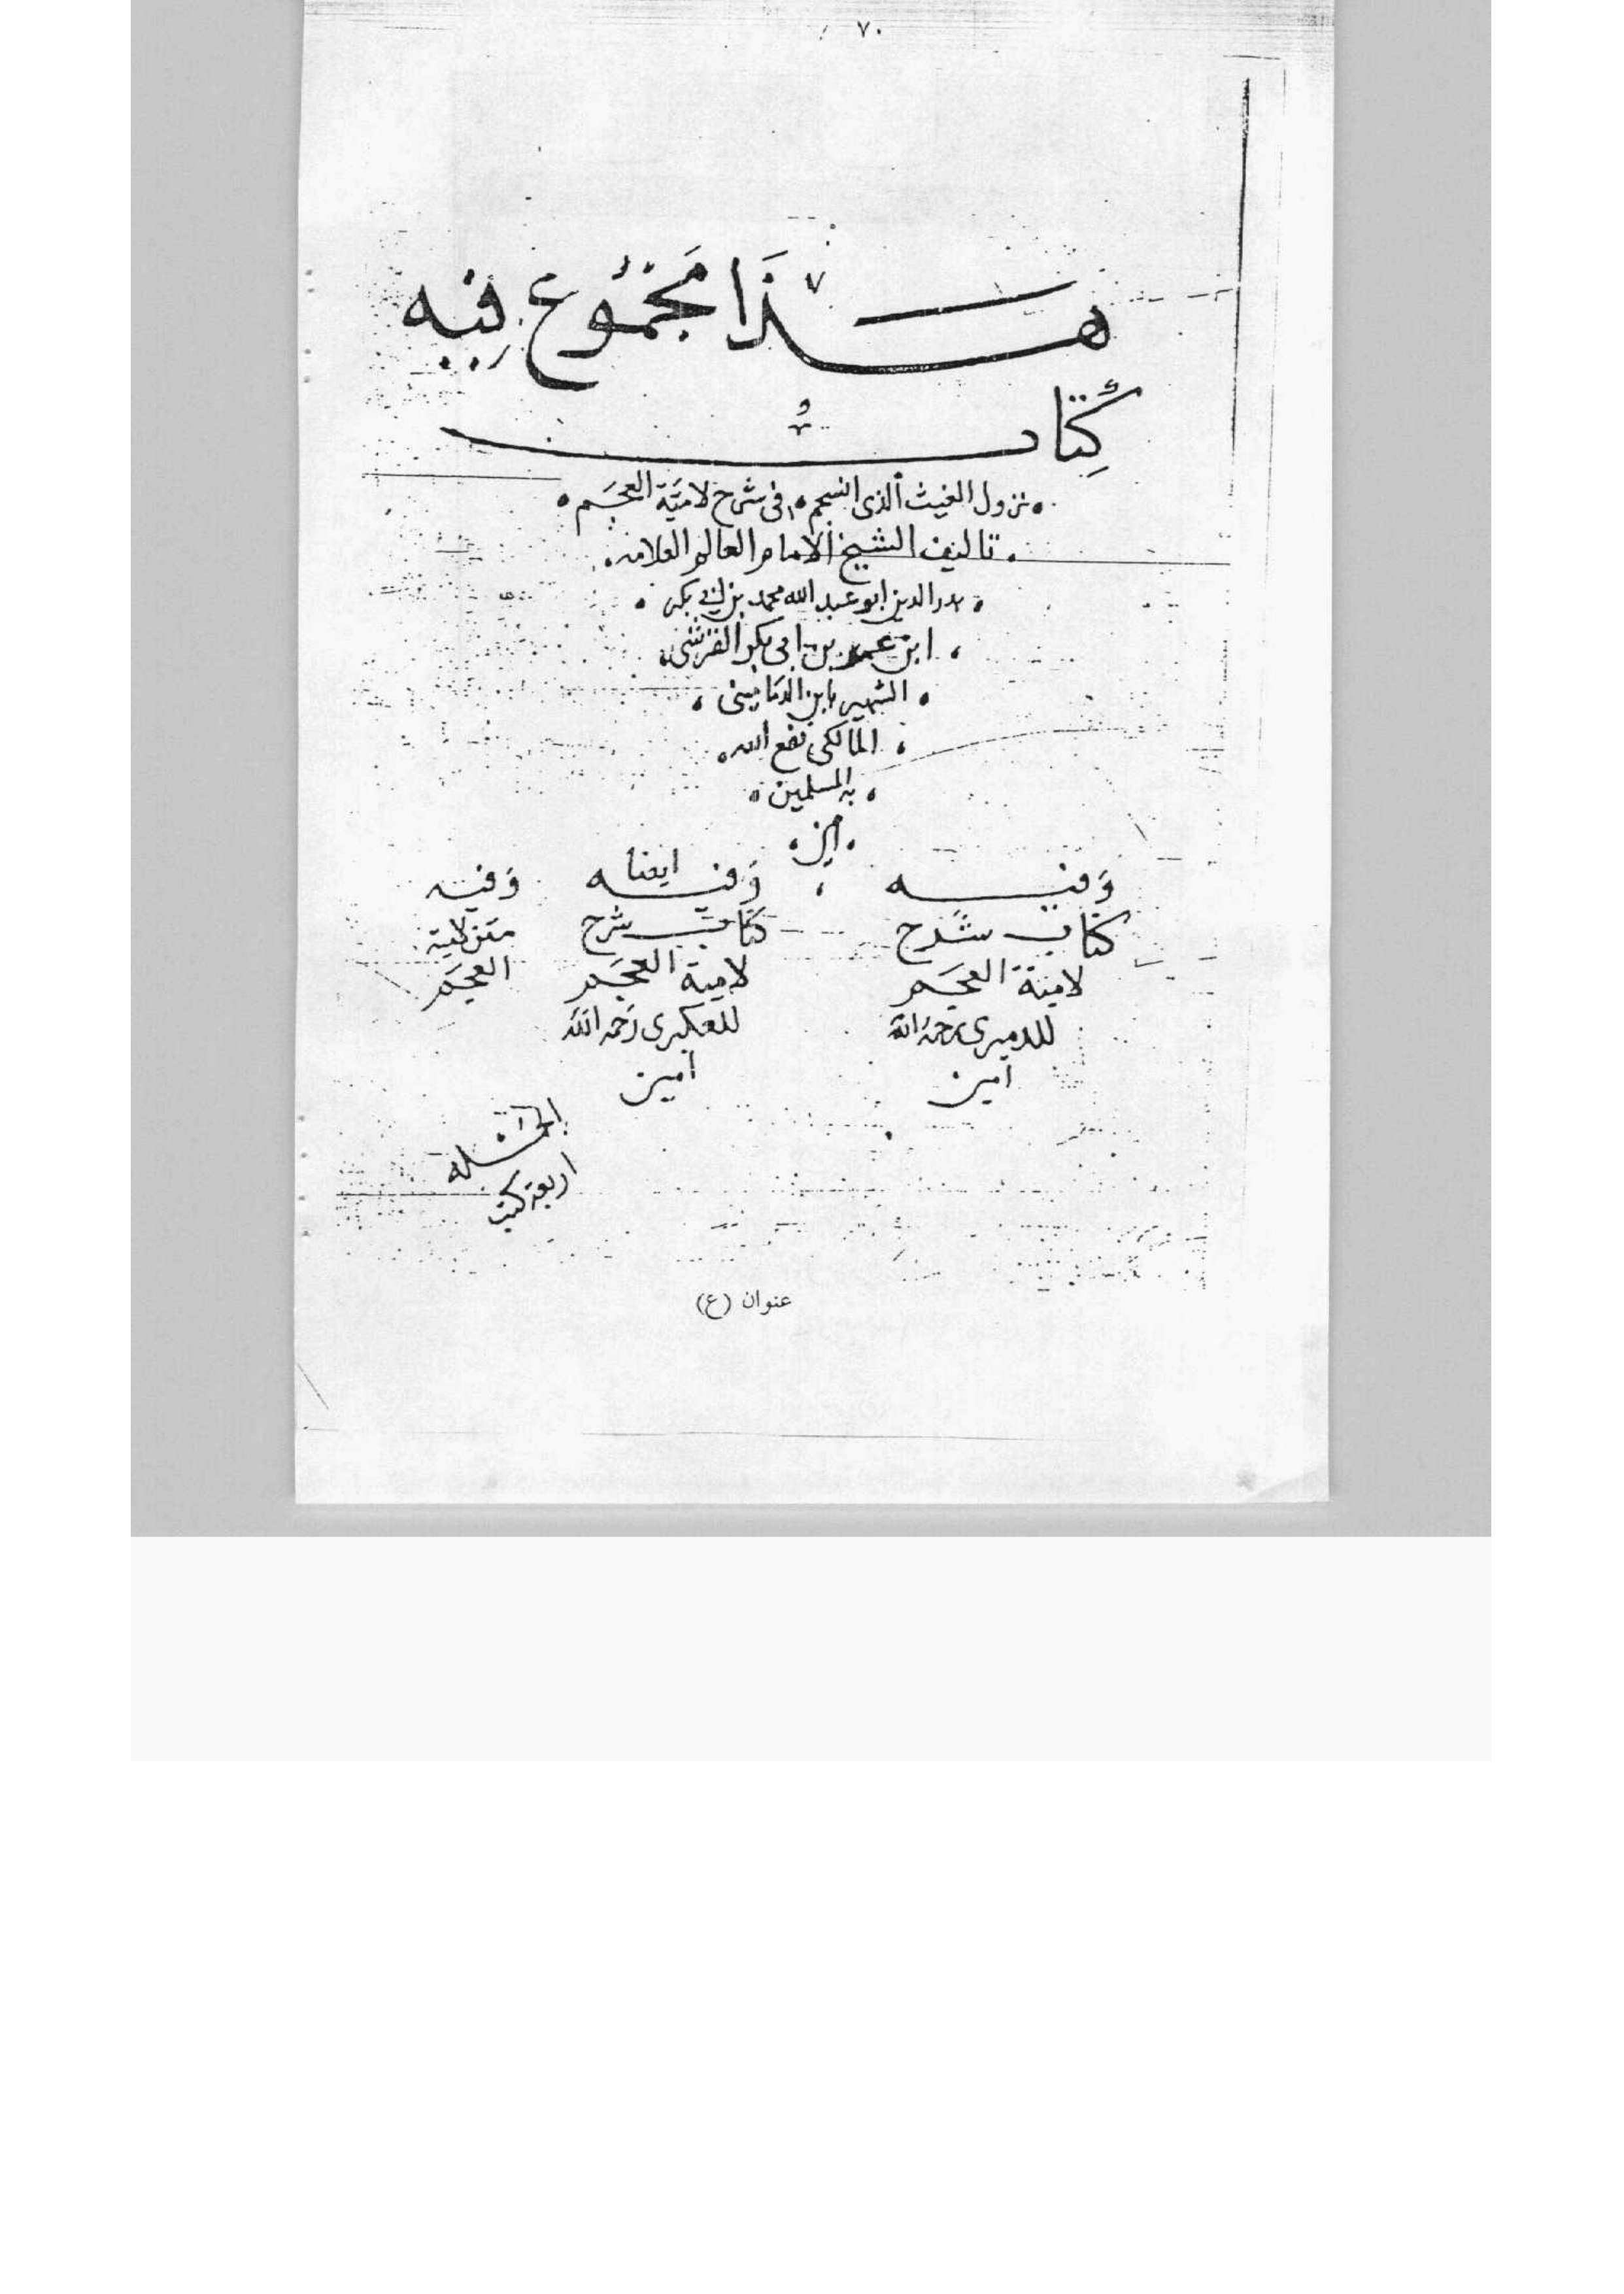 ٧٠
هَذَا مَجْمُوع فِيْه
كِتَابُ
نزول الغيث الذى انسجم فى شرح لاميّة العجَم
تاليف الشيخ الامام العالم العلامه
بدر الدين ابو عبد الله محمد بن ابى بكر
ابن عمر بن ابى بكر القرشى
الشهير بابن الدمامينى
المالكى نفع الله
به المسلمين
امين
وَفيه
كتاب شرح
لامية العجَم
للدميرى رحمه الله
امين
وَفيه ايضا
كتاب شرح
لامية العجَم
للعكبرى رَحمه الله
امين
وَفيه
متن لامية
العجَم
الجمله
اربعة كتب
عنوان (ع)